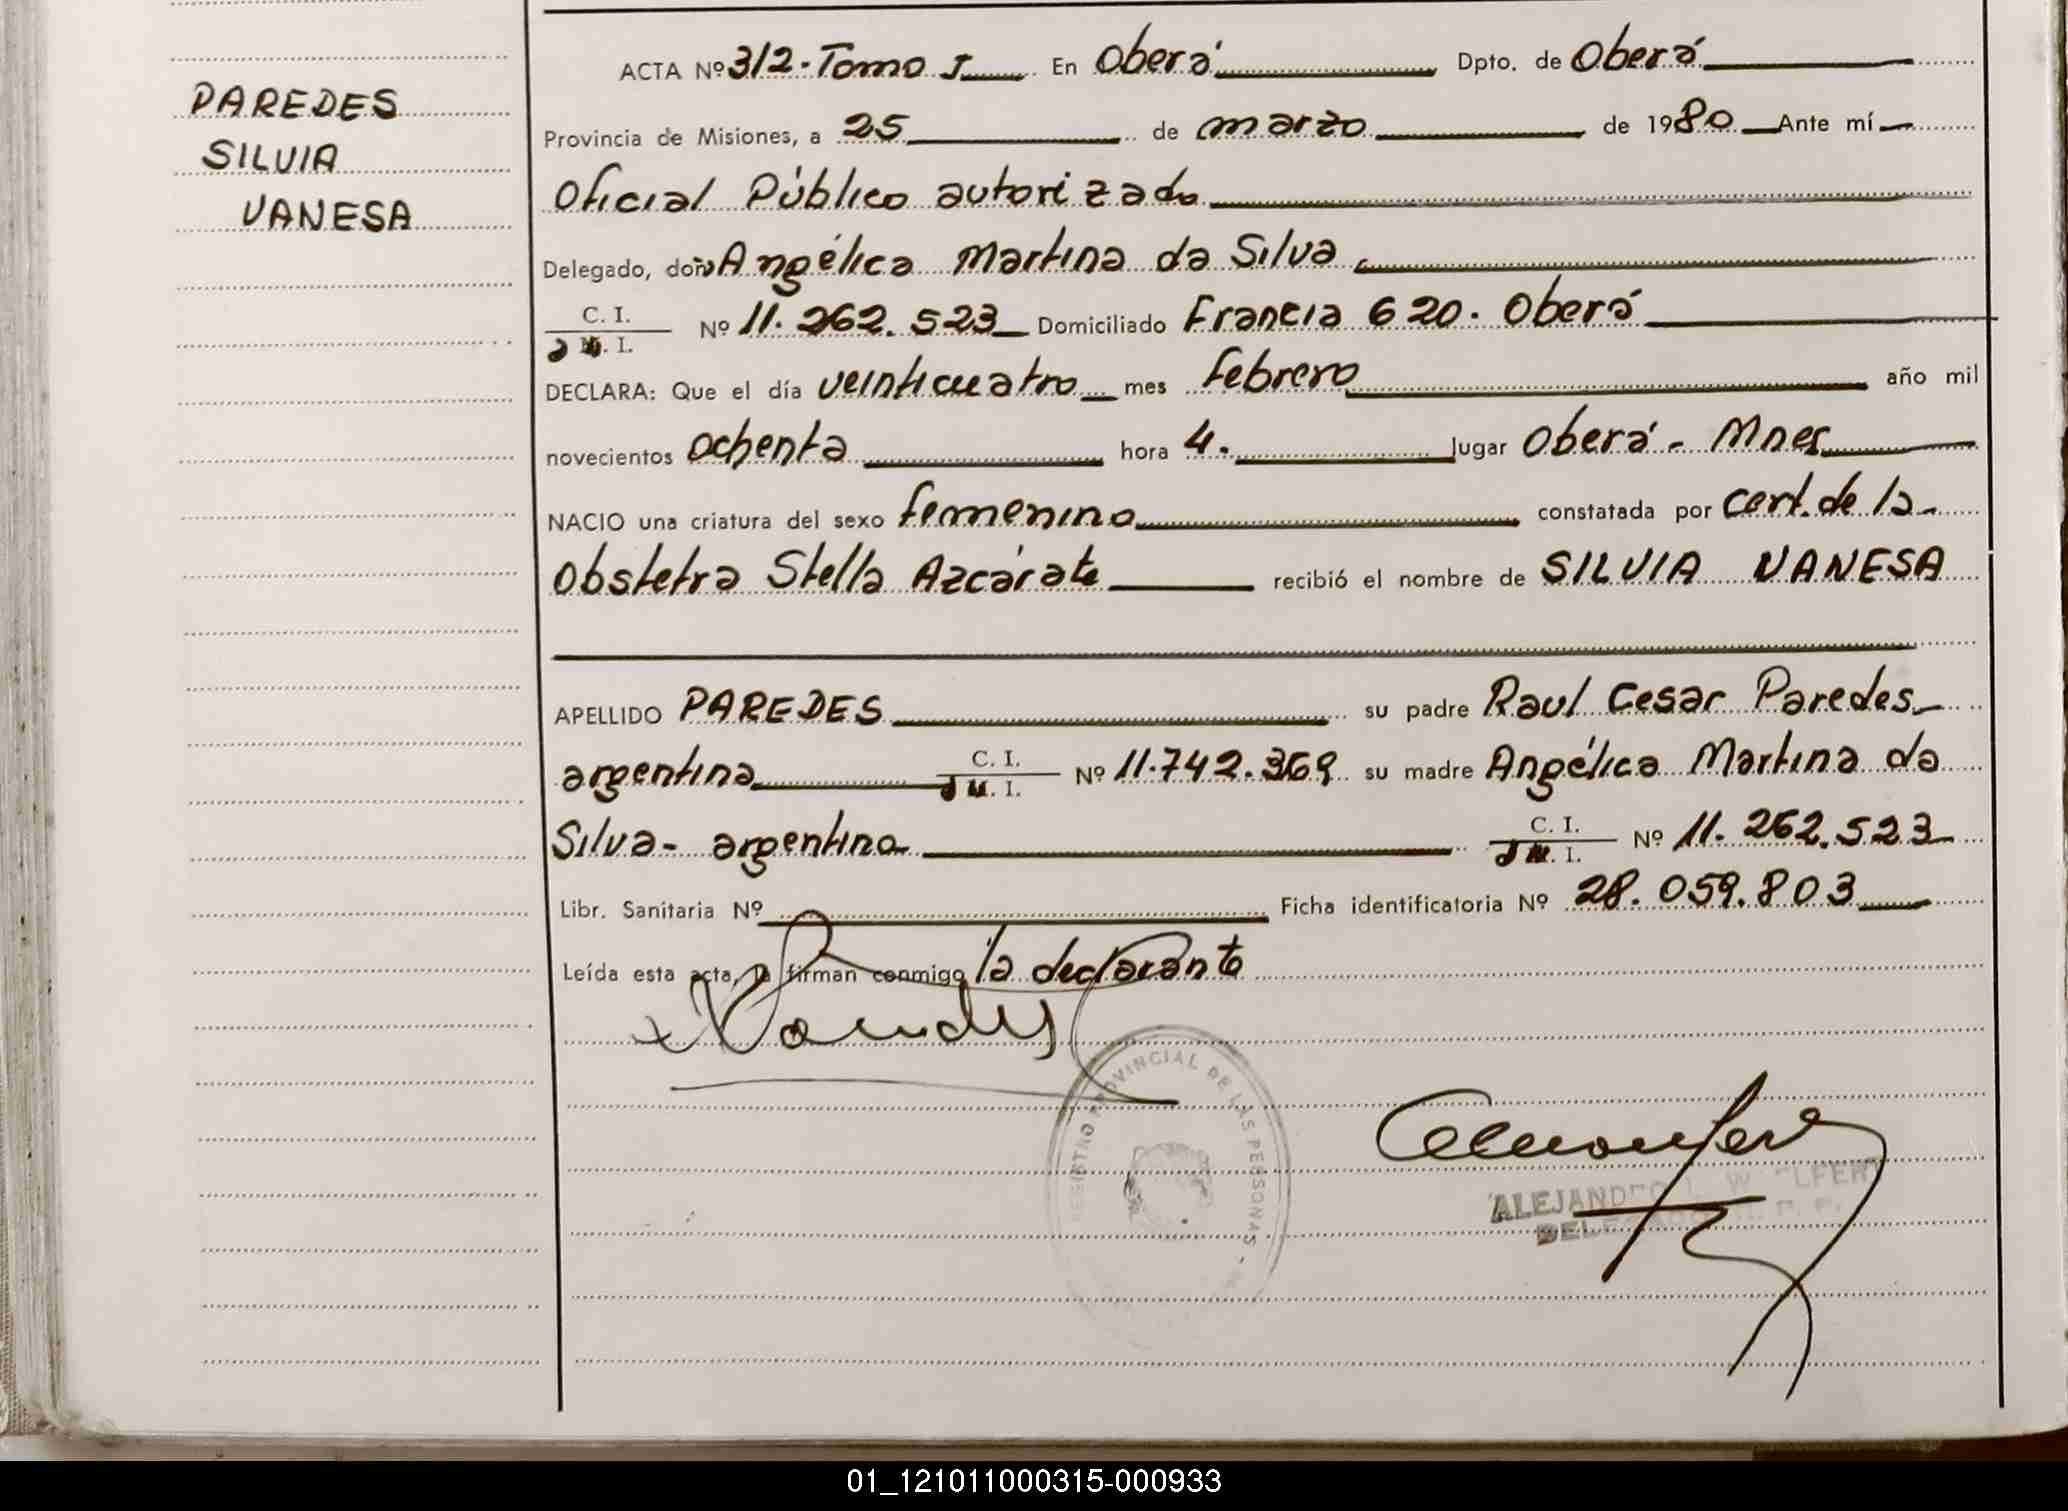 PAREDES
SILVIA
VANESA
ACTA Nº 312 - Tomo I En Oberá Dpto. de Oberá
Provincia de Misiones, a 25 de marzo de 1980 Ante mí
Oficial Público autorizado
Delegado, don Angélica Martina da Silva
C. I.
Nº 11.262.523 Domiciliado Francia 620. Oberá
M. I.
DECLARA: Que el día veinticuatro mes febrero año mil
novecientos ochenta hora 4. lugar Oberá - Mnes
NACIO una criatura del sexo femenino constatada por cert. de la
Obstetra Stella Azcárate recibió el nombre de SILVIA VANESA
APELLIDO PAREDES su padre Raul Cesar Paredes
argentina C. I. M. I. Nº 11.742.369 su madre Angélica Martina da
Silva - argentina C. I. M. I. Nº 11.262.523
Libr. Sanitaria Nº Ficha identificatoria Nº 28.059.803
Leída esta acta, la firman conmigo la declarante
REGISTRO PROVINCIAL DE LAS PERSONAS -
ALEJANDRO
01_121011000315-000933